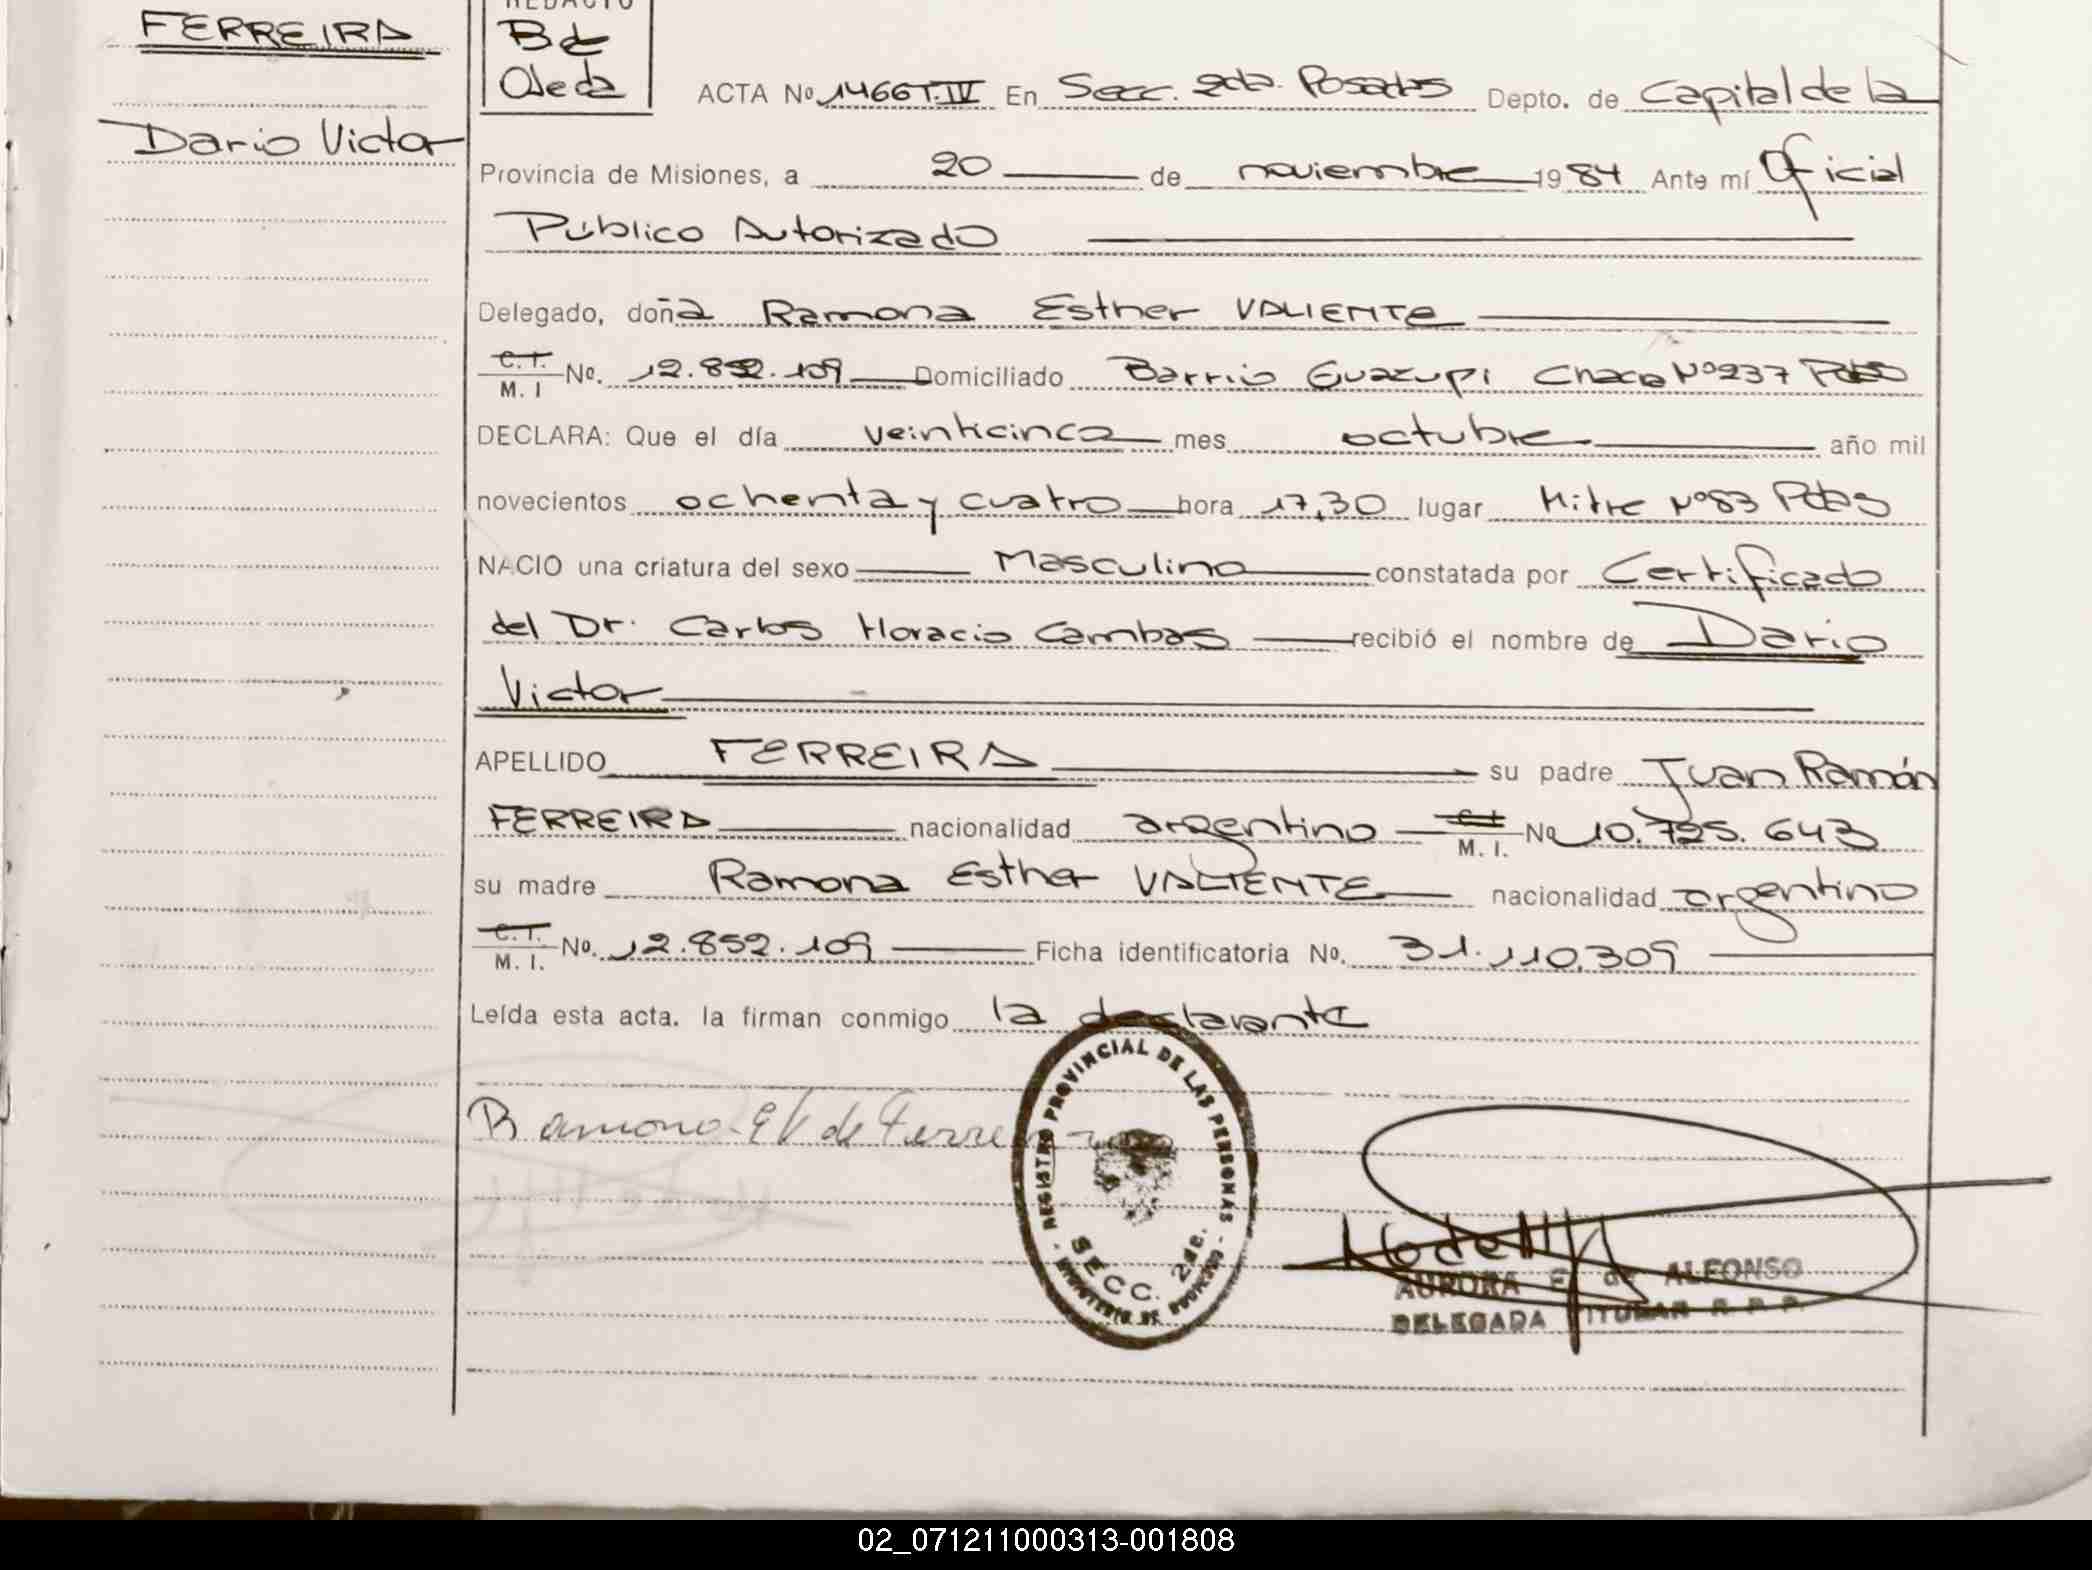 FERREIRA
Dario Victor
REDACTO
B de
Ojeda
ACTA Nº 1466 T.IV En Secc. 2da. Posadas Depto. de Capital de la
Provincia de Misiones, a 20 de noviembre 1984 Ante mí Oficial
Público Autorizado
Delegado, doña Ramona Esther VALIENTE
C.I.
M. I Nº. 12.852.109 Domiciliado Barrio Guazupi Chaca Nº 237 Pdas
DECLARA: Que el día veinticinco mes octubre año mil
novecientos ochenta y cuatro hora 17,30 lugar Mitre Nº83 Pdas
NACIO una criatura del sexo Masculino constatada por Certificado
del Dr. Carlos Horacio Cambas recibió el nombre de Dario
Victor
APELLIDO FERREIRA su padre Juan Ramón
FERREIRA nacionalidad argentino C.I.
M. I. Nº 10.725.643
su madre Ramona Esther VALIENTE nacionalidad argentino
C.I.
M. I. Nº. 12.852.109 Ficha identificatoria Nº. 31.110.309
Leída esta acta. la firman conmigo la declarante
Ramona E V de Ferreira
REGISTRO PROVINCIAL DE LAS PERSONAS
SECC. 2da.
MINISTERIO DE GOBIERNO
AURORA E. de ALFONSO
DELEGADA TITULAR R. P. P.
02_071211000313-001808